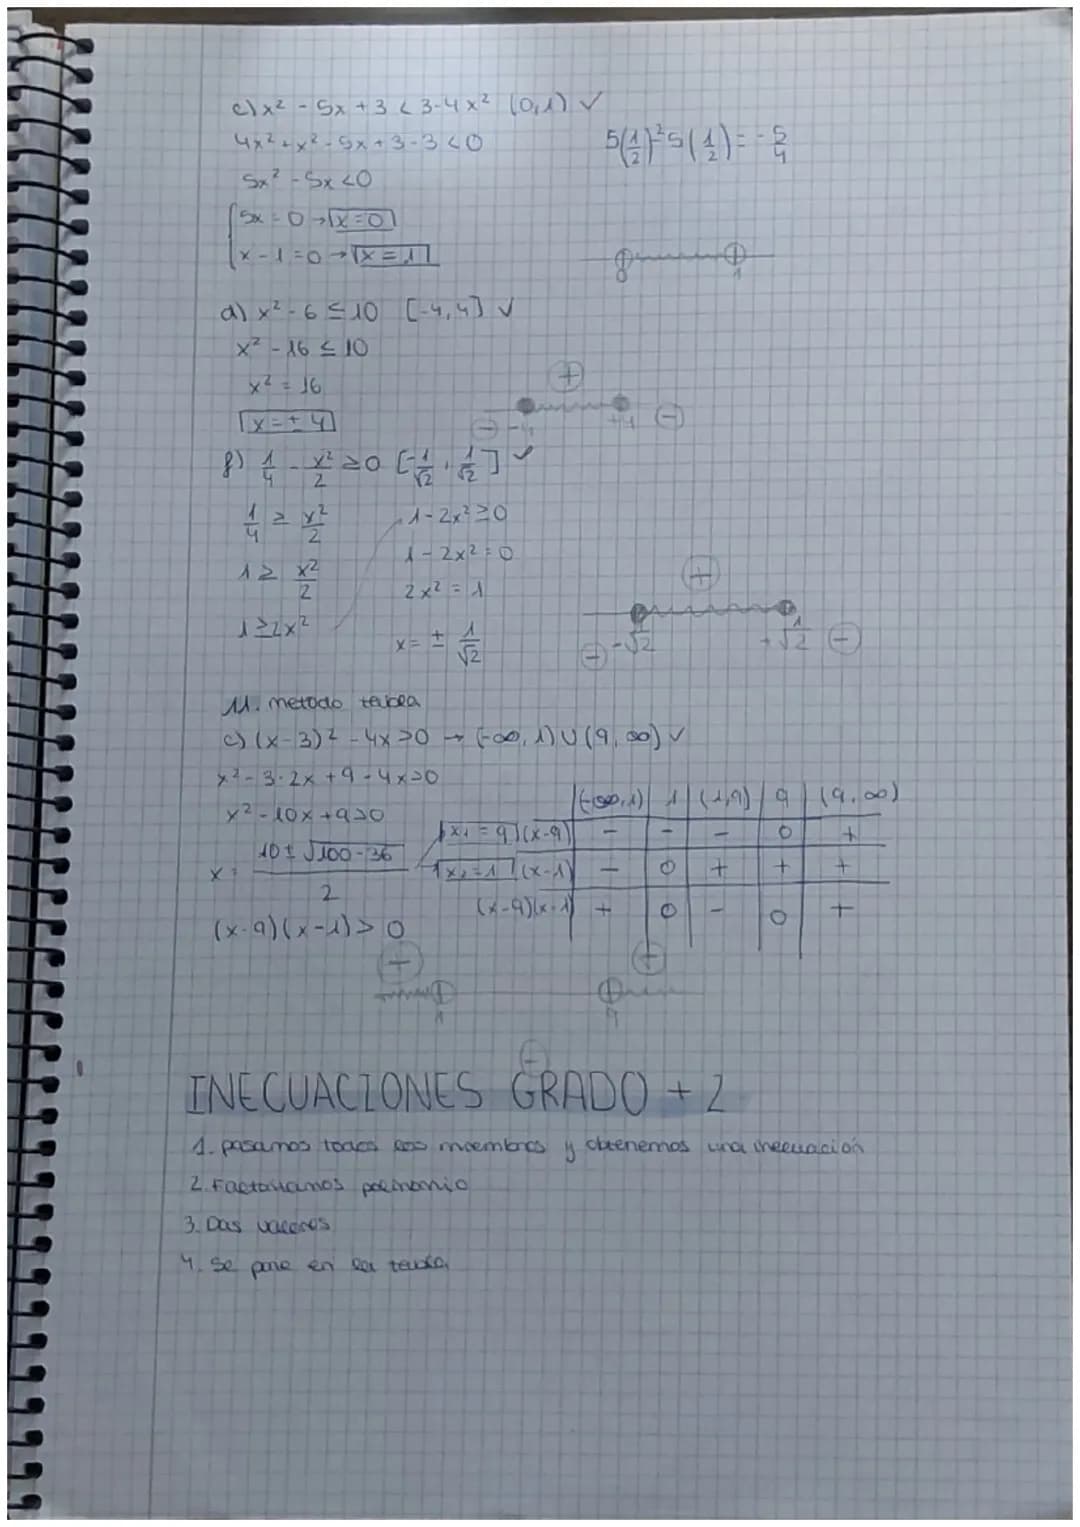 c) x² - 5x + 3 < 3-4x² (0,1) ✓
4x² + x² - 5x + 3 - 3 < 0
5(1/2)² - 5(1/2) = -5/4
5x² - 5x < 0
5x = 0 → x = 0
x - 1 = 0 → x = 1
0 1
d) x² - 6 ≤ 10 [-4,4] ✓
x² - 16 ≤ 10
x² = 16
x = ± 4
+
- -4 +4 -
f) 1/4 - x²/2 ≥ 0 [-1/√2, 1/√2] ✓
1/4 ≥ x²/2
1 ≥ x²/2
1 ≥ 2x²
1 - 2x² ≥ 0
1 - 2x² = 0
2x² = 1
x = ± 1/√2
+
- -1/√2 +1/√2 -
11. metodo tabla
c) (x-3)² - 4x > 0 → (-∞, 1) ∪ (9, ∞) ✓
x² - 3·2x + 9 - 4x > 0
x² - 10x + 9 > 0
x = 10 ± √100-36 / 2
x₁ = 9
x₂ = 1
(-∞,1) 1 (1,9) 9 (9,∞)
(x-9) - - - 0 +
(x-1) - 0 + + +
(x-9)(x-1) + 0 - 0 +
(x-9)(x-1) > 0
+ +
1 9
-
INECUACIONES GRADO + 2
1. pasamos todos los miembros y obtenemos una inecuación
2. Factorizamos polinomio
3. Das valores
4. Se pone en la tabla